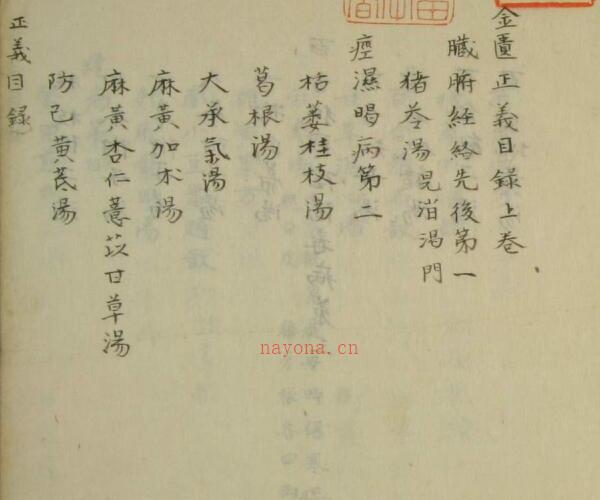 金匱正義目錄上卷
臓腑経絡先後第一
猪苓湯見消渴門
痙濕暍病第二
栝蔞桂枝湯
葛根湯
大承氣湯
麻黃加朮湯
麻黃杏仁薏苡甘草湯
防己黃芪湯
正義目錄
nayona.cn